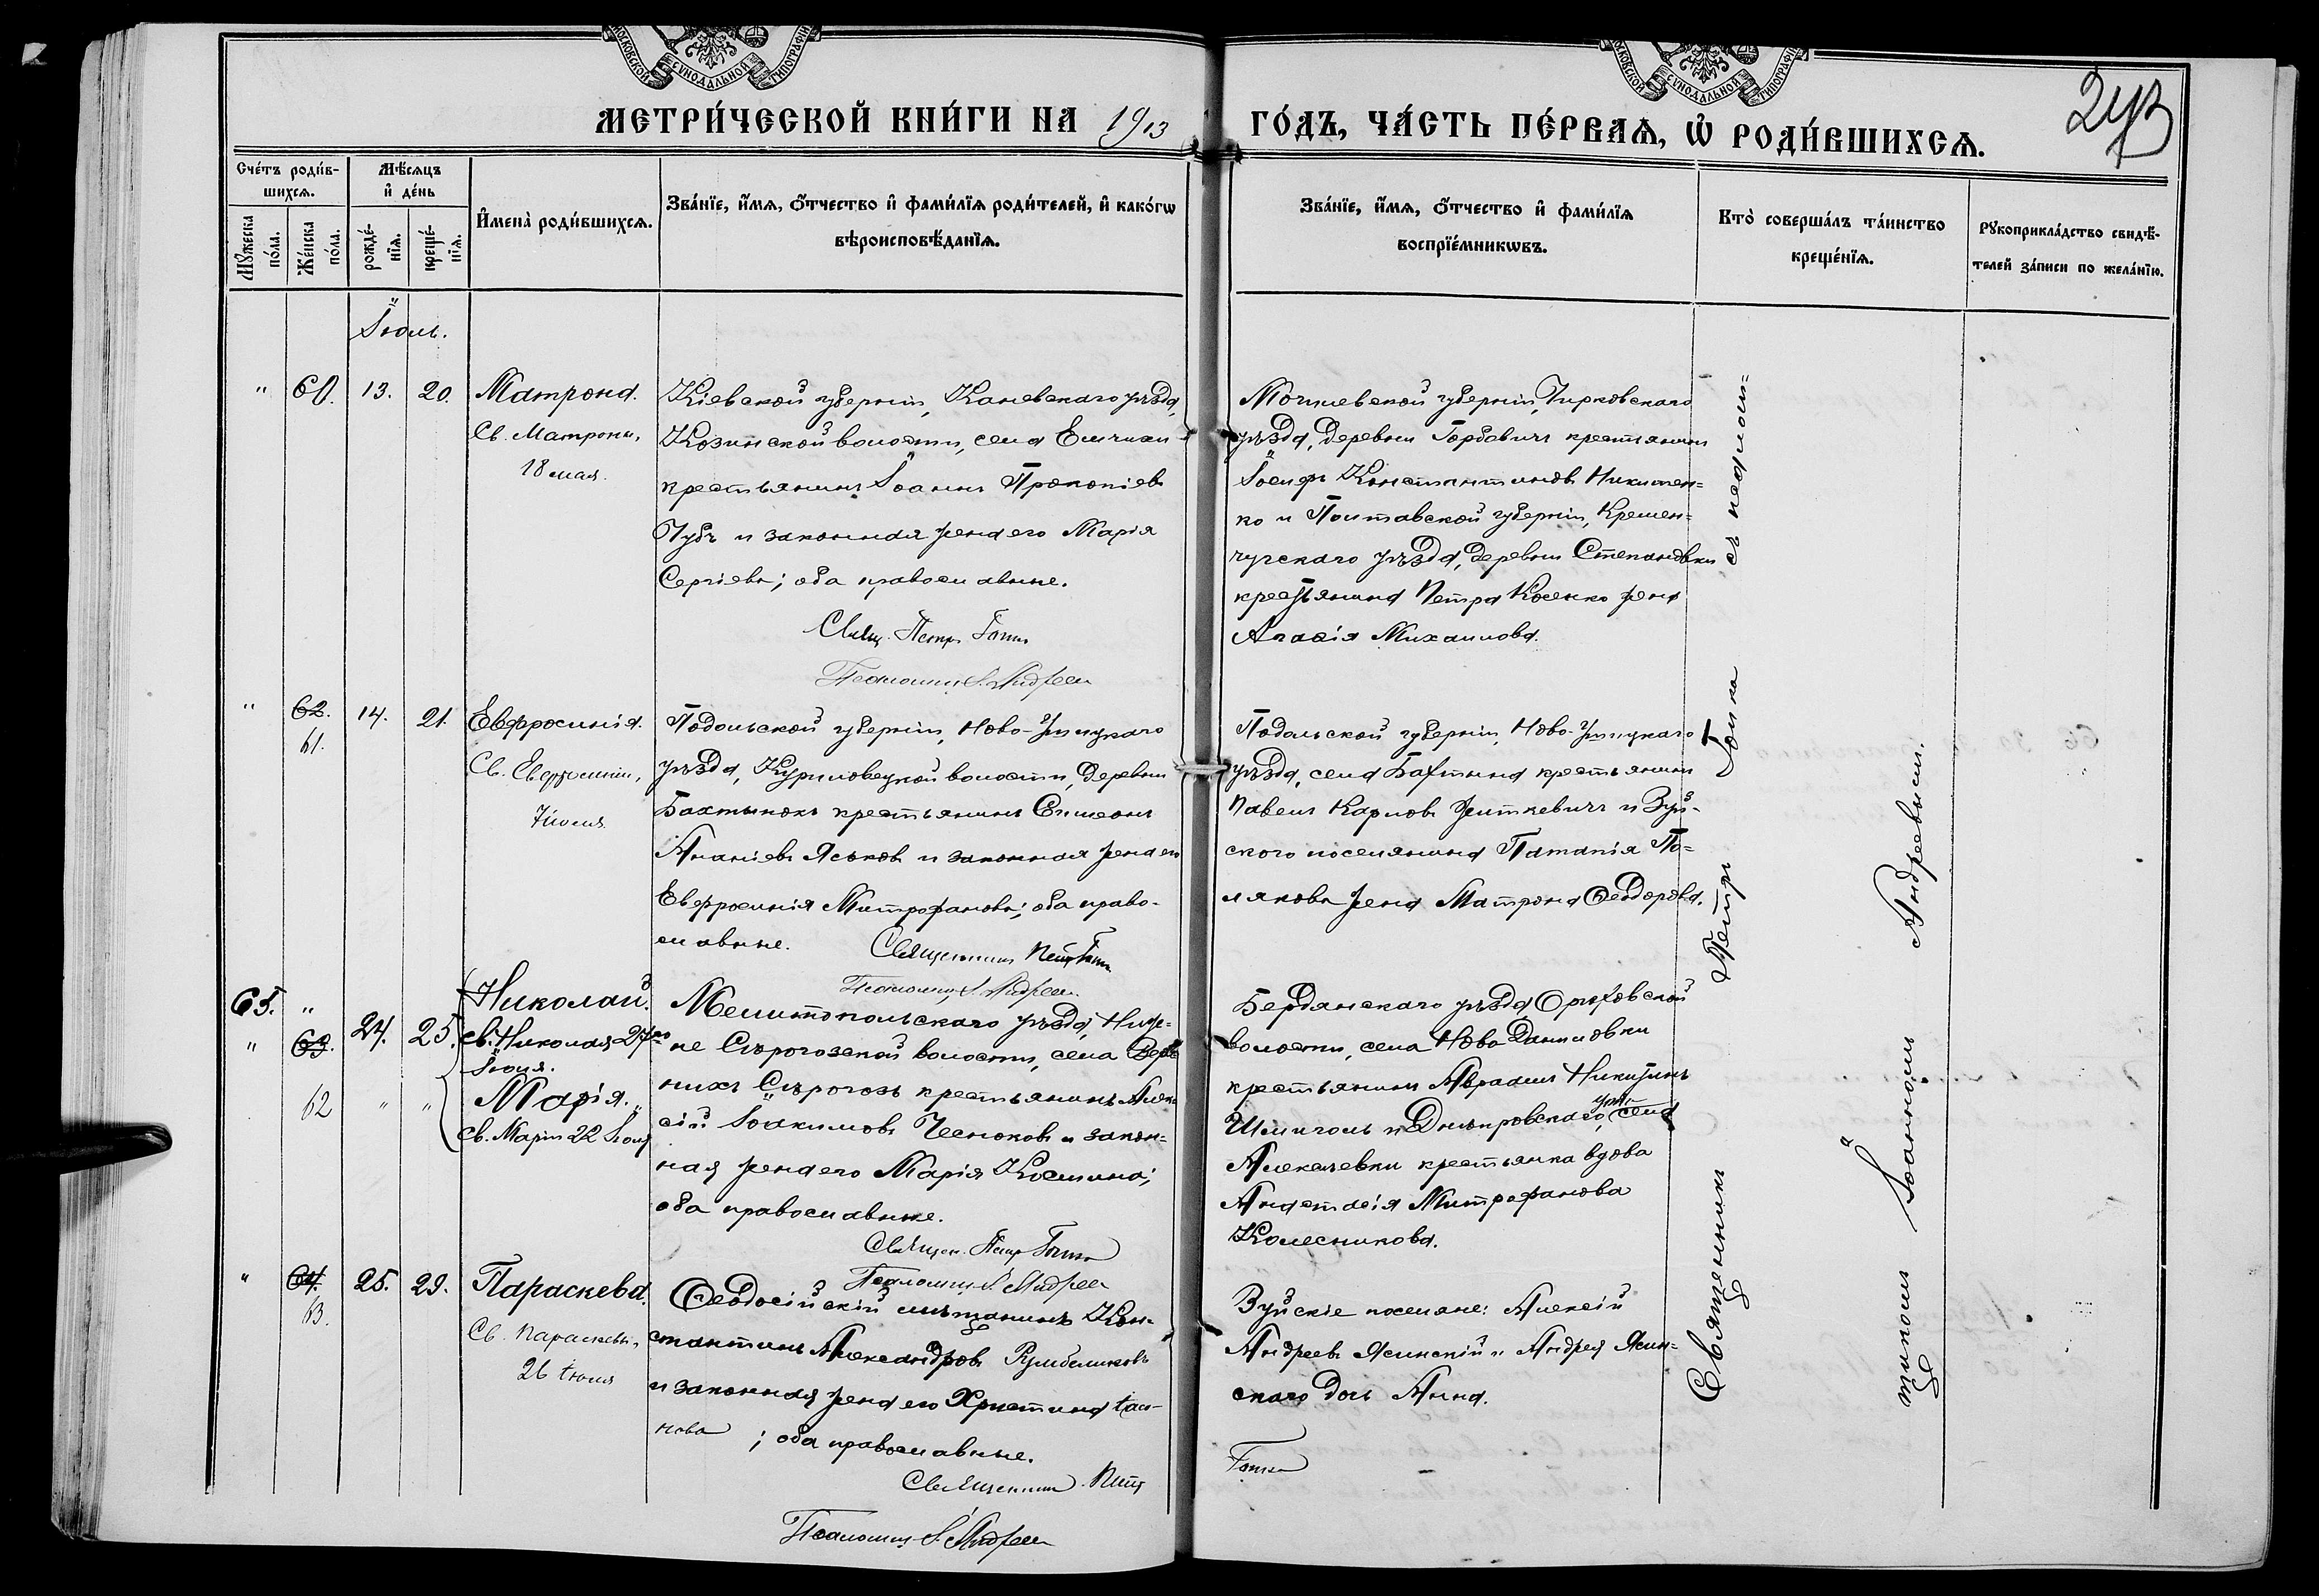 МОСКОВСКОЙ СѴНОДАЛЬНОЙ ТИПОГРАФІИ
МОСКОВСКОЙ СѴНОДАЛЬНОЙ ТИПОГРАФІИ
МЕТРИ́ЧЕСКОЙ КНИ́ГИ НА 1913 ГО́ДЪ, ЧА́СТЬ ПЕ́РВАѦ, Ѡ҆ РОДИ́ВШИХСѦ.
Сче́тъ роди́в-
шихсѧ.
Мѣ́сѧцъ
и҆ де́нь
Мꙋ́жеска по́ла.
Же́нска по́ла.
рожде́-нїѧ.
креще́-нїѧ.
И҆мена̀ роди́вшихсѧ.
Зва́нїе, и҆́мѧ, ѻ҆́тчество и҆ фами́лїѧ роди́телей, и҆ како́гѡ
вѣроисповѣ́данїѧ.
Зва́нїе, и҆́мѧ, ѻ҆́тчество и҆ фами́лїѧ
воспрїе́мникѡвъ.
Кто̀ соверша́лъ та́инство
креще́нїѧ.
Рꙋкоприкла́дство свидѣ́-
телей за́писи по жела́нїю.
Іюль.
" 60. 13. 20. Матрона.
Св. Матроны,
18 мая.
Кіевской губерніи, Каневскаго уѣзда,
Козинской волости, села Емчихи
крестьянинъ Іоаннъ Прокопіевъ
Чубъ и законная жена его Марія
Сергіева; оба православные.
Свящ. Петръ Готка
Псаломщ. І. Андреев
Могилевской губерніи, Чириковскаго
уѣзда, деревни Горбавичъ крестьянинъ
Іосифъ Константиновъ Никитен=
ко и Полтавской губерніи, Кремен=
чугскаго уѣзда, деревни Степановки
крестьянина Петра Косенко жена
Агафія Михаилова.
" 62. 61. 14. 21. Евфросинія.
Св. Евфросиніи,
7 іюля.
Подольской губерніи, Ново-Ушицкаго
уѣзда, Куриловецкой волости, деревни
Бахтынокъ крестьянинъ Симеонъ
Ананіевъ Яськовъ и законная жена его
Евфросинія Митрофанова; оба право-
славные.
Священникъ Петръ Готка
Псаломщ. І. Андреев
Подольской губерніи, Ново-Ушицкаго
уѣзда, села Бахтына крестьянинъ
Павелъ Карповъ Житкевичъ и Зуй-
ского поселянина Патапія По=
лякова жена Матрона Ѳеодорова.
65. "
" 63. 24. 25. Николай.
св. Николая 27го
Іюля.
62 " " Марія.
св. Маріи 22 Іюля
Мелитопольскаго уѣзда, Ниж=
не Сѣрогозской волости, села Верх
нихъ Сѣрогозъ крестьянинъ Алек
сій Іоакимовъ Чесноковъ и закон=
ная жена его Марія Космина;
оба православные.
Священ. Петръ Готка
Псаломщ. І. Андреев
Бердянскаго уѣзда, Орѣховской
волости, села Ново Даниловки
крестьянинъ Авраамъ Никитинъ
Шмиголь и Днѣпровскаго уѣз. села
Алексѣевки крестьянка вдова
Анастасія Митрофанова
Колесникова.
" 64. 63. 25. 29. Параскева.
Св. Параскевы,
26 іюля
Ѳеодосійскій мѣщанинъ Кон-
стантинъ Александровъ
и законная жена его Христина
нова ; оба православные.
Священникъ Петръ
Готка
Псаломщ. І. Андреев
Зуйскіе поселяне: Алексій
Андреевъ Ясинскій и Андрея Ясин=
скаго дочь Анна.
Священникъ Петръ Готка съ псалом=
щикомъ Іоанномъ Андреевымъ.